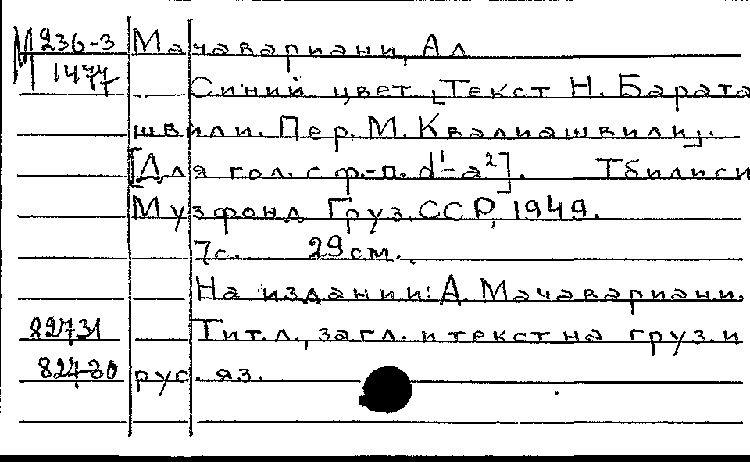 М 236-3 Мачавариани, Ал
1477 Синий цвет [Текст Н. Барата
швили. Пер. М. Квалиашвили].
[Для гол. с ф.-п. d¹-a²]. Тбилиси
Музфонд Груз.ССР, 1949.
7с. 29 см.
На издании: А. Мачавариани.
82731 Тит.л., загл. и текст на груз. и
824-30 рус. яз.